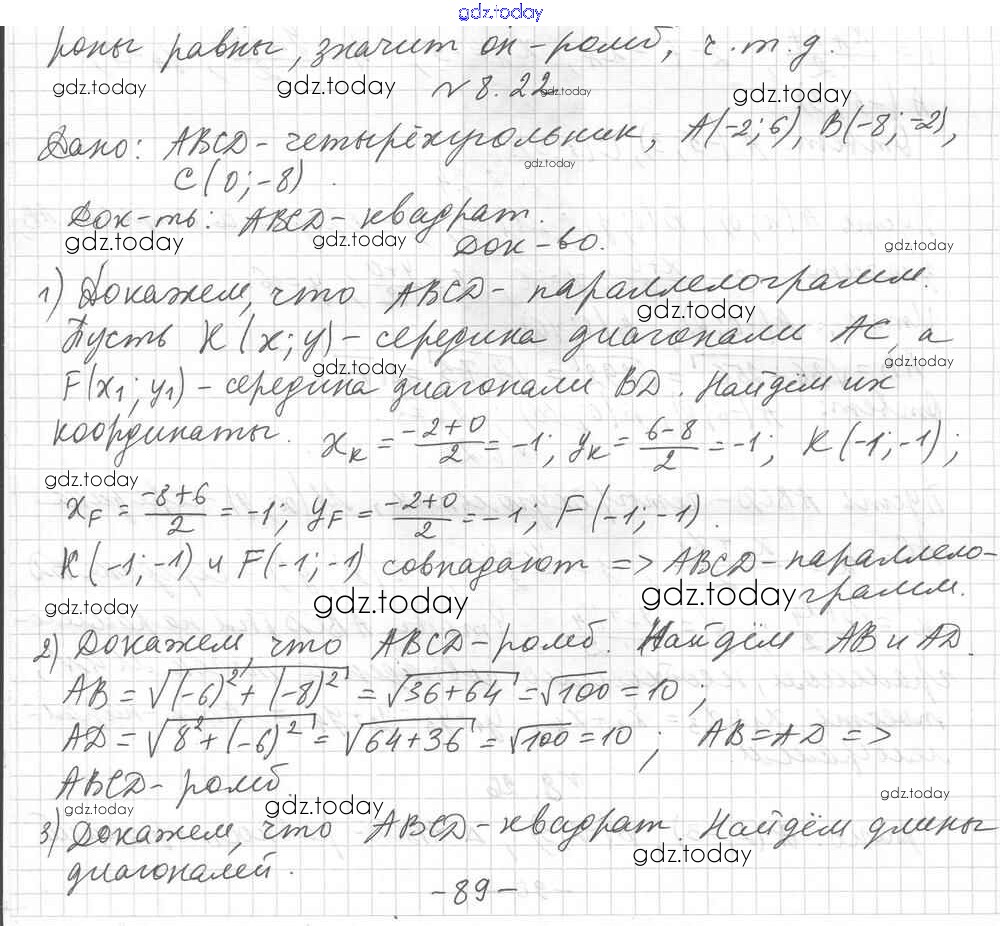 gdz.today
роны равны, значит он - ромб, ч.т.д.
gdz.today gdz.today gdz.today
№ 8.22. gdz.today
Дано: ABCD - четырёхугольник, A(-2; 6), B(-8; -2),
gdz.today
C(0; -8).
Док-ть: ABCD - квадрат.
gdz.today gdz.today gdz.today
Док-во.
1) Докажем, что ABCD - параллелограмм.
gdz.today
Пусть K(x; y) - середина диагонали AC, а
gdz.today gdz.today
F(x₁; y₁) - середина диагонали BD. Найдём их
координаты. x_K = (-2+0)/2 = -1; y_K = (6-8)/2 = -1; K(-1; -1);
gdz.today
x_F = (-8+6)/2 = -1; y_F = (-2+0)/2 = -1; F(-1; -1).
K(-1; -1) и F(-1; -1) совпадают => ABCD - параллело-
gdz.today gdz.today gdz.today
грамм.
2) Докажем, что ABCD - ромб. Найдём AB и AD.
AB = √((-6)² + (-8)²) = √(36+64) = √100 = 10;
AD = √(8² + (-6)²) = √(64+36) = √100 = 10; AB = AD =>
ABCD - ромб.
gdz.today gdz.today gdz.today
3) Докажем, что ABCD - квадрат. Найдём длины
gdz.today
диагоналей.
- 89 -